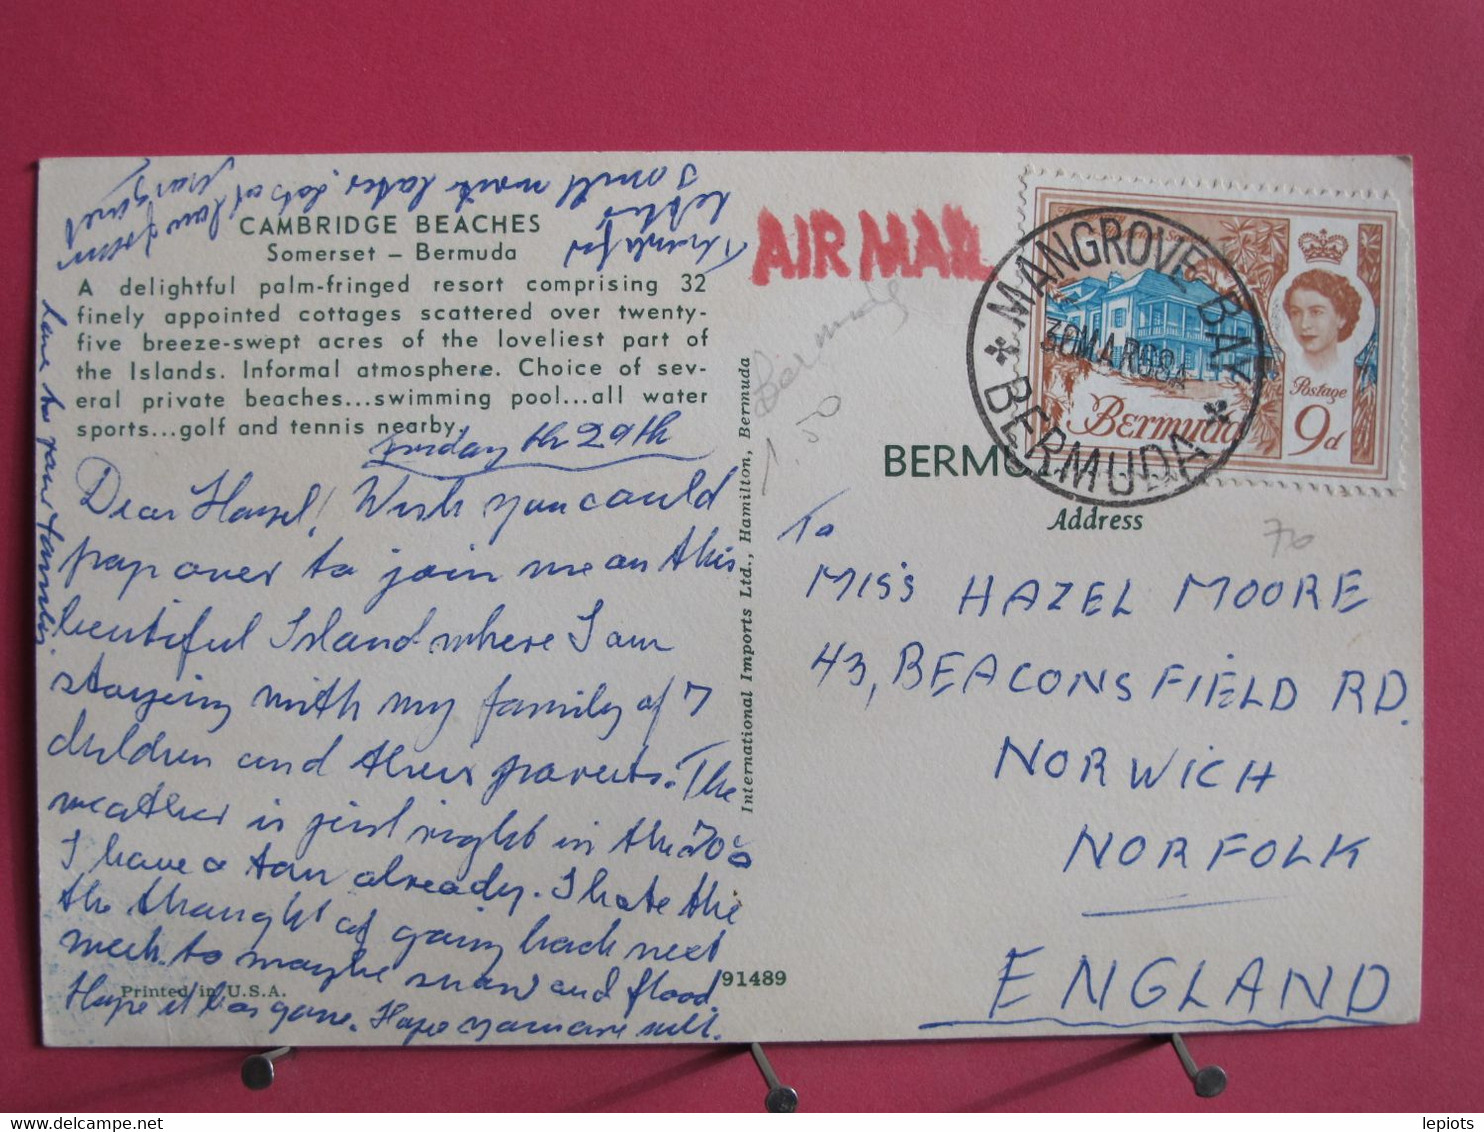 CAMBRIDGE BEACHES
Somerset – Bermuda
A delightful palm-fringed resort comprising 32
finely appointed cottages scattered over twenty-
five breeze-swept acres of the loveliest part of
the Islands. Informal atmosphere. Choice of sev-
eral private beaches...swimming pool...all water
sports...golf and tennis nearby.
Friday th 29th
Dear Hazel! Wish you could
pop over to join me on this
beutiful Island where I am
staying with my family of 7
children and their parents. The
weather is just right in the 70s
I have a tan already. I hate the
the thought of going back next
week to maybe snow and flood
Hope it has gone. Hope you are well.
Printed in U.S.A.
91489
Thanks for
letter
I will write later. lots of
love from
Margaret
Love to your family.
International Imports Ltd., Hamilton, Bermuda
AIR MAIL
Bermudes
1.50
MANGROVE BAY
30MAR68A
BERMUDA
Bermuda
Postage
9d
BERMUDA
Address
70
To
MISS HAZEL MOORE
43, BEACONSFIELD RD.
NORWICH
NORFOLK
ENGLAND
lepiots